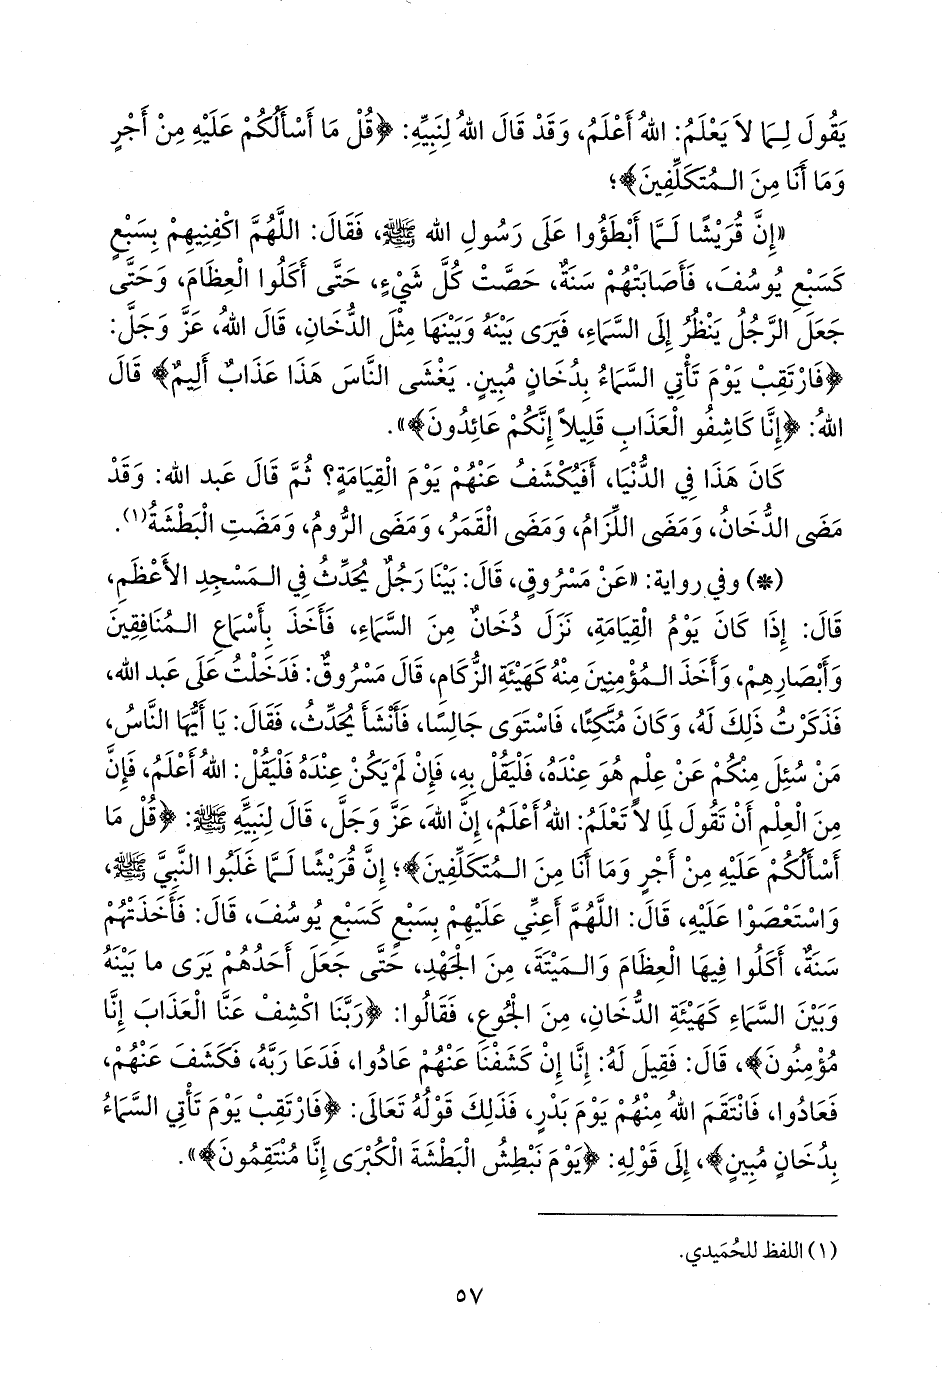 يَقُولَ لِمَا لاَ يَعْلَمُ: اللهُ أَعْلَمُ، وَقَدْ قَالَ اللهُ لِنَبِيِّهِ: ﴿قُلْ مَا أَسْأَلُكُمْ عَلَيْهِ مِنْ أَجْرٍ
وَمَا أَنَا مِنَ الْمُتَكَلِّفِينَ﴾؛
«إِنَّ قُرَيْشًا لَمَّا أَبْطَؤُوا عَلَى رَسُولِ الله ﷺ، فَقَالَ: اللَّهُمَّ اكْفِنِيهِمْ بِسَبْعٍ
كَسَبْعِ يُوسُفَ، فَأَصَابَتْهُمْ سَنَةٌ، حَصَّتْ كُلَّ شَيْءٍ، حَتَّى أَكَلُوا الْعِظَامَ، وَحَتَّى
جَعَلَ الرَّجُلُ يَنْظُرُ إِلَى السَّمَاءِ، فَيَرَى بَيْنَهُ وَبَيْنَهَا مِثْلَ الدُّخَانِ، قَالَ اللهُ، عَزَّ وَجَلَّ:
﴿فَارْتَقِبْ يَوْمَ تَأْتِي السَّمَاءُ بِدُخَانٍ مُبِينٍ. يَغْشَى النَّاسَ هَذَا عَذَابٌ أَلِيمٌ﴾ قَالَ
اللهُ: ﴿إِنَّا كَاشِفُو الْعَذَابِ قَلِيلاً إِنَّكُمْ عَائِدُونَ﴾».
كَانَ هَذَا فِي الدُّنْيَا، أَفَيُكْشَفُ عَنْهُمْ يَوْمَ الْقِيَامَةِ؟ ثُمَّ قَالَ عَبد الله: وَقَدْ
مَضَى الدُّخَانُ، وَمَضَى اللِّزَامُ، وَمَضَى الْقَمَرُ، وَمَضَى الرُّومُ، وَمَضَتِ الْبَطْشَةُ(١).
(*) وفي رواية: «عَنْ مَسْرُوقٍ، قَالَ: بَيْنَا رَجُلٌ يُحَدِّثُ فِي الْمَسْجِدِ الأَعْظَمِ،
قَالَ: إِذَا كَانَ يَوْمُ الْقِيَامَةِ، نَزَلَ دُخَانٌ مِنَ السَّمَاءِ، فَأَخَذَ بِأَسْمَاعِ الْمُنَافِقِينَ
وَأَبْصَارِهِمْ، وَأَخَذَ الْمُؤْمِنِينَ مِنْهُ كَهَيْئَةِ الزُّكَامِ، قَالَ مَسْرُوقٌ: فَدَخَلْتُ عَلَى عَبد الله،
فَذَكَرْتُ ذَلِكَ لَهُ، وَكَانَ مُتَّكِئًا، فَاسْتَوَى جَالِسًا، فَأَنْشَأَ يُحَدِّثُ، فَقَالَ: يَا أَيُّهَا النَّاسُ،
مَنْ سُئِلَ مِنْكُمْ عَنْ عِلْمٍ هُوَ عِنْدَهُ، فَلْيَقُلْ بِهِ، فَإِنْ لَمْ يَكُنْ عِنْدَهُ فَلْيَقُلْ: اللهُ أَعْلَمُ، فَإِنَّ
مِنَ الْعِلْمِ أَنْ تَقُولَ لِمَا لاَ تَعْلَمُ: اللهُ أَعْلَمُ، إِنَّ اللهَ، عَزَّ وَجَلَّ، قَالَ لِنَبِيِّهِ ﷺ: ﴿قُلْ مَا
أَسْأَلُكُمْ عَلَيْهِ مِنْ أَجْرٍ وَمَا أَنَا مِنَ الْمُتَكَلِّفِينَ﴾؛ إِنَّ قُرَيْشًا لَمَّا غَلَبُوا النَّبِيَّ ﷺ،
وَاسْتَعْصَوْا عَلَيْهِ، قَالَ: اللَّهُمَّ أَعِنِّي عَلَيْهِمْ بِسَبْعٍ كَسَبْعِ يُوسُفَ، قَالَ: فَأَخَذَتْهُمْ
سَنَةٌ، أَكَلُوا فِيهَا الْعِظَامَ وَالْمَيْتَةَ، مِنَ الْجَهْدِ، حَتَّى جَعَلَ أَحَدُهُمْ يَرَى مَا بَيْنَهُ
وَبَيْنَ السَّمَاءِ كَهَيْئَةِ الدُّخَانِ، مِنَ الْجُوعِ، فَقَالُوا: ﴿رَبَّنَا اكْشِفْ عَنَّا الْعَذَابَ إِنَّا
مُؤْمِنُونَ﴾، قَالَ: فَقِيلَ لَهُ: إِنَّا إِنْ كَشَفْنَا عَنْهُمْ عَادُوا، فَدَعَا رَبَّهُ، فَكَشَفَ عَنْهُمْ،
فَعَادُوا، فَانْتَقَمَ اللهُ مِنْهُمْ يَوْمَ بَدْرٍ، فَذَلِكَ قَوْلُهُ تَعَالَى: ﴿فَارْتَقِبْ يَوْمَ تَأْتِي السَّمَاءُ
بِدُخَانٍ مُبِينٍ﴾، إِلَى قَوْلِهِ: ﴿يَوْمَ نَبْطِشُ الْبَطْشَةَ الْكُبْرَى إِنَّا مُنْتَقِمُونَ﴾».
(١) اللفظ للحُمَيدي.
٥٧